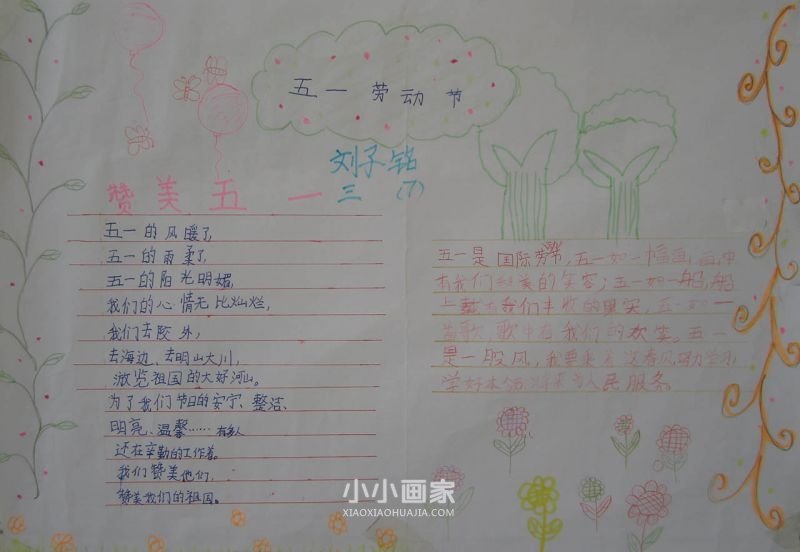 五一劳动节
刘子铭
三 (7)
赞美五一
五一的风暖了
五一的雨柔了,
五一的阳光明媚,
我们的心情无比灿烂,
我们去胶外,
去海边、去明山大川,
游览祖国的大好河山。
为了我们节日的安宁、整洁、
明亮、温馨……有多人
还在辛勤的工作着。
我们赞美他们,
赞美我们的祖国。
五一是国际劳节,五一如一幅画,画中
有我们甜美的笑容;五一如一船,船
上载有我们丰收的果实,五一如一
首歌,歌中有我们的欢笑。五一
是一股风,我要乘 努力学习
学好本领 人民服务。
小小画家
XIAOXIAOHUAJIA.COM